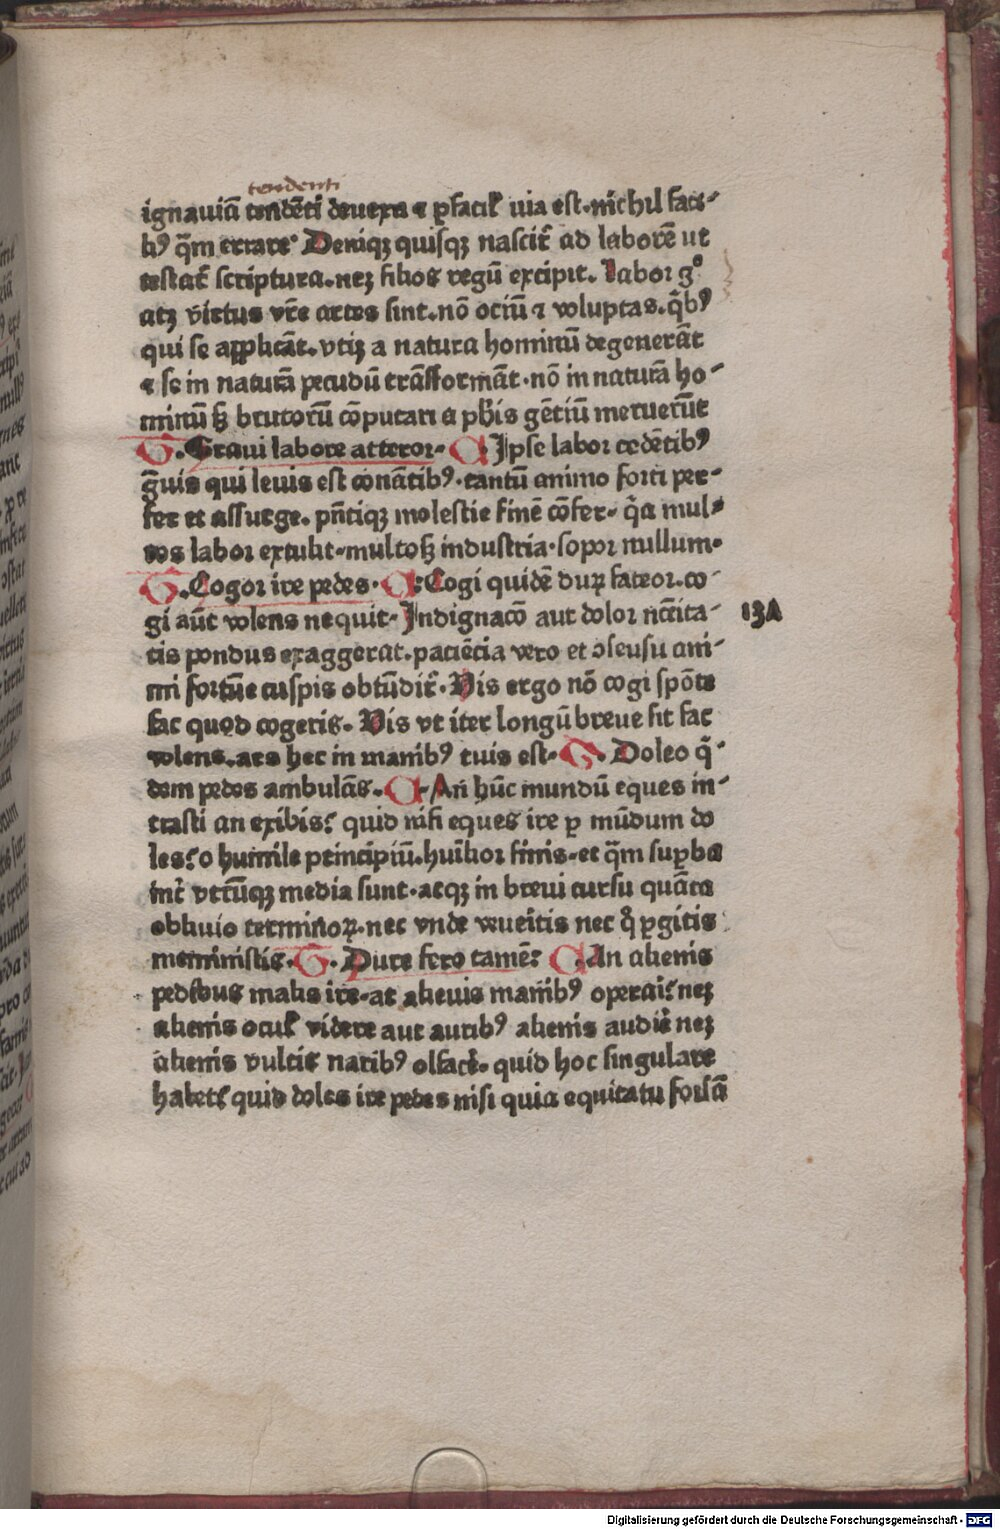 tendenti
ignauiā tendēti deuexa ⁊ ꝑfacil' uia est. nichil faci-
li⁹ q̄m errare Deniqꝫ quisqꝫ nascit᷑ ad laborē ut
testat᷑ scriptura. neꝫ filios regū excipit. Labor gͦ
atꝫ v̄irtus vr̄e artes sint. nō ociū ⁊ voluptas. q̄b⁹
qui se applicāt. vtiꝫ a natura hominū degenerāt
⁊ se in naturā pecudū trāsformāt. nō in naturā ho-
minū sꝫ brutorū cōputari a gētiū meruerūt
G. Graui labore atteror. A Ipse labor cedētib⁹
ḡuis qui leuis est conātib⁹. tantū animo forti per-
fer et assurge. pn̄tiqꝫ molestie finē cōfer. q̄a mul-
tos labor extulit. multosꝫ industria. sopor nullum.
G. Cogor ire pedes. A: Cogi quidē durꝫ fateor. co-
gi aūt volens nequit. Indignacō aut dolor nc̄cita-
13A
tis pondus exaggerat. paciēcia vero et ↄsensu ani-
mi fortūe cuspis obtūdit᷑. Vis ergo nō cogi spōte
fac quod cogeris. Vis vt iter longū breue sit fac
volens. ars hec in manib⁹ tuis est. G. Doleo q̄-
dem pedes ambulās. A. An hūc mundū eques in-
trasti an exibis? quid nisi eques ire ꝑ mūdum do
les? o humile principiū. huīlior finis. et q̄m suꝑba
int᷑ vtrūqꝫ media sunt. atqꝫ in breui cursu quāta
obliuio terminoꝝ. nec vnde veneritis nec q̊ ꝑgitis
meministis. G. Pure fero tamē? A An alienis
pedibus malis ire. at alienis manib⁹ operari? neꝫ
alienis ocul' videre aut aurib⁹ alienis audir̄ neꝫ
alienis vultis narib⁹ olfacē. quid hoc singulare
habet? quid doles ire pedes nisi quia equitatu forsā
Digitalisierung gefördert durch die Deutsche Forschungsgemeinschaft - DFG